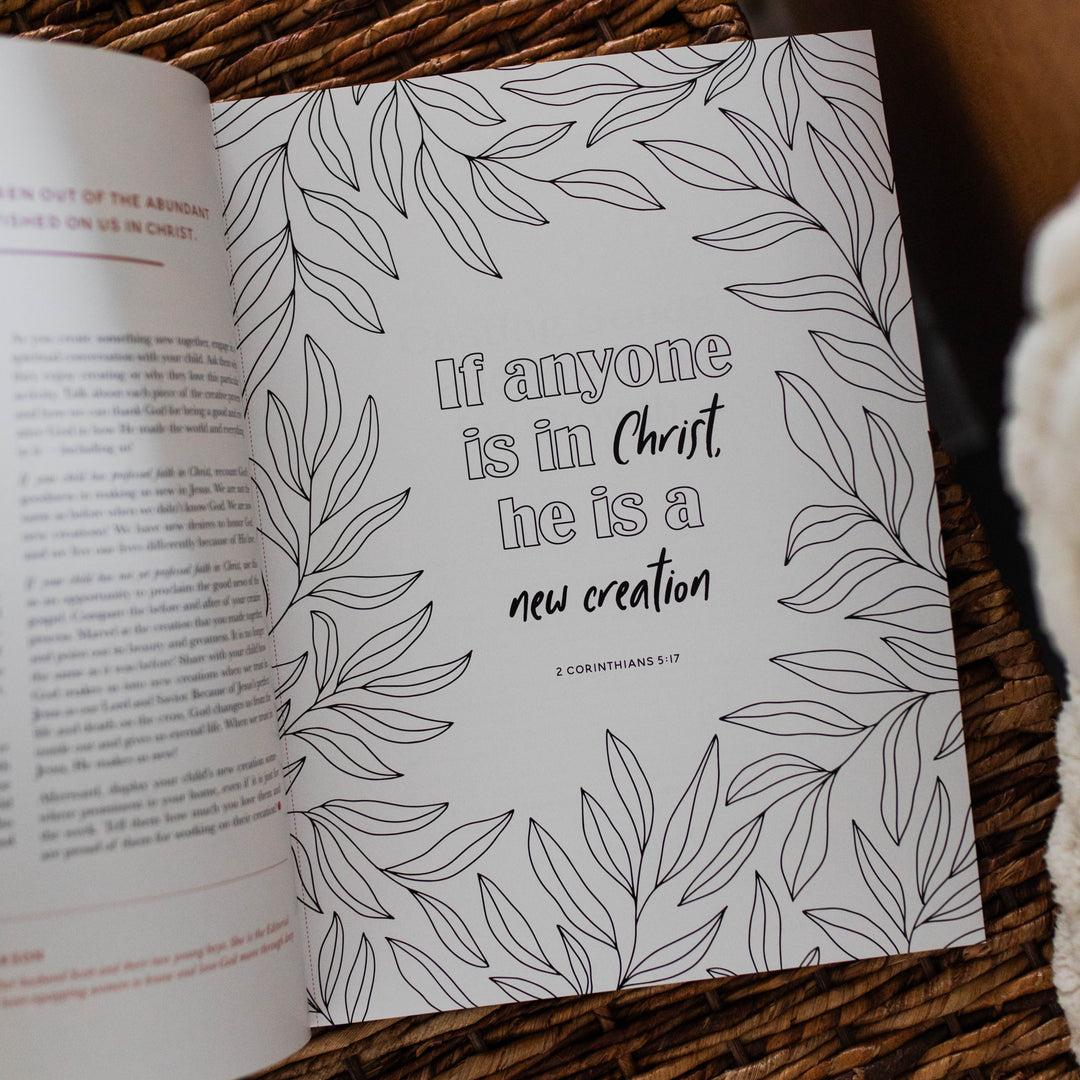 EN OUT OF THE ABUNDANT
ISHED ON US IN CHRIST.
As you create something new together, engage in
spiritual conversation with your child. Ask them
they enjoy creating or why they love this particular
activity. Talk about each piece of the creative process
and how we can thank God for being a good and
God is how He made the world and everything
in it—including us!
If your child has professed faith in Christ, recount God's
goodness in making us new in Jesus. We are not the
same as before when we didn't know God. We are
new creations! We have new desires to honor God,
and we live our lives differently because of His love.
If your child has not yet professed faith in Christ, use this
as an opportunity to proclaim the good news of the
gospel. Compare the before and after of your creative
process. Marvel at the creation that you made together,
and point out its beauty and greatness. It is no longer
the same as it was before! Share with your child how
God makes us into new creations when we trust in
Jesus as our Lord and Savior. Because of Jesus's perfect
life and death on the cross, God changes us from the
inside out and gives us eternal life. When we trust in
Jesus, He makes us new!
Afterward, display your child's new creation some-
where prominent in your home, even if it is just for
the week. Tell them how much you love them and
are proud of them for working on their creation!
husband and their two young boys. She is the Editorial
equipping women to know and love God more through
If anyone
is in Christ,
he is a
new creation
2 CORINTHIANS 5:17